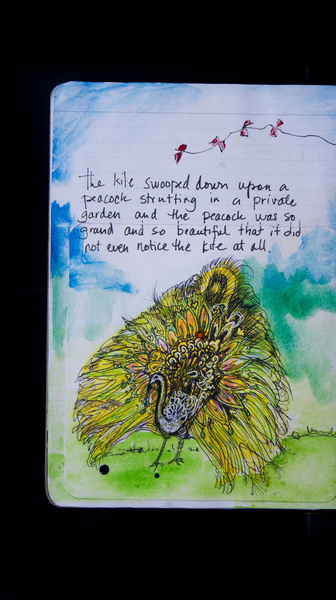 the kite swooped down upon a
peacock strutting in a private
garden and the peacock was so
grand and so beautiful that it did
not even notice the kite at all.